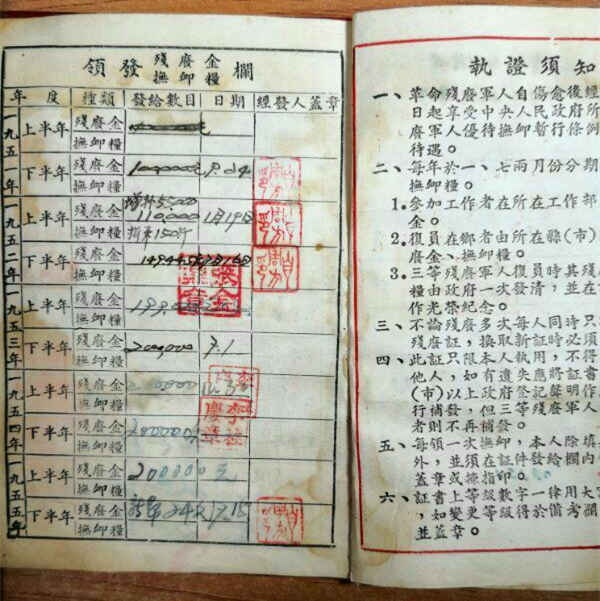 領發殘廢金撫卹糧欄
年度 種類 發給數目 日期 經發人蓋章
一九五一年
上半年 殘廢金 撫卹糧
下半年 殘廢金 撫卹糧
一九五二年
上半年 殘廢金 110,000 1月19日
撫卹糧
下半年 殘廢金 撫卹糧
一九五三年
上半年 殘廢金 撫卹糧
下半年 殘廢金 200,000 7.1
撫卹糧
一九五四年
上半年 殘廢金 撫卹糧
下半年 殘廢金 撫卹糧
一九五五年
上半年 殘廢金 200000元
撫卹糧
下半年 殘廢金 撫卹糧
執證須知
一、革命殘廢軍人自傷愈後經
日起享受中央人民政府所
廢軍人優待撫卹暫行條例
待遇。
二、每年於一、七兩月份分期
撫卹糧。
1.參加工作者在所在工作部
金。
2.復員在鄉者由所在縣(市)
廢金、撫卹糧。
3.三等殘廢軍人復員時其殘
糧由政府一次發清,並在
作光榮紀念。
三、不論殘廢多次每人同時只
殘廢証,換取新証時必須
四、此証只限本人執用,不得
他人,如有遺失應將証書
(市)以上政府登記聲明作
行補發,但三等殘廢軍人
者則不再補發。
五、每領一次撫卹,本人除填
外,並須在証件發給欄內
蓋章或捺指印。
六、証書上等級數字一律用大
,如變更等級得於備考欄
並蓋章。